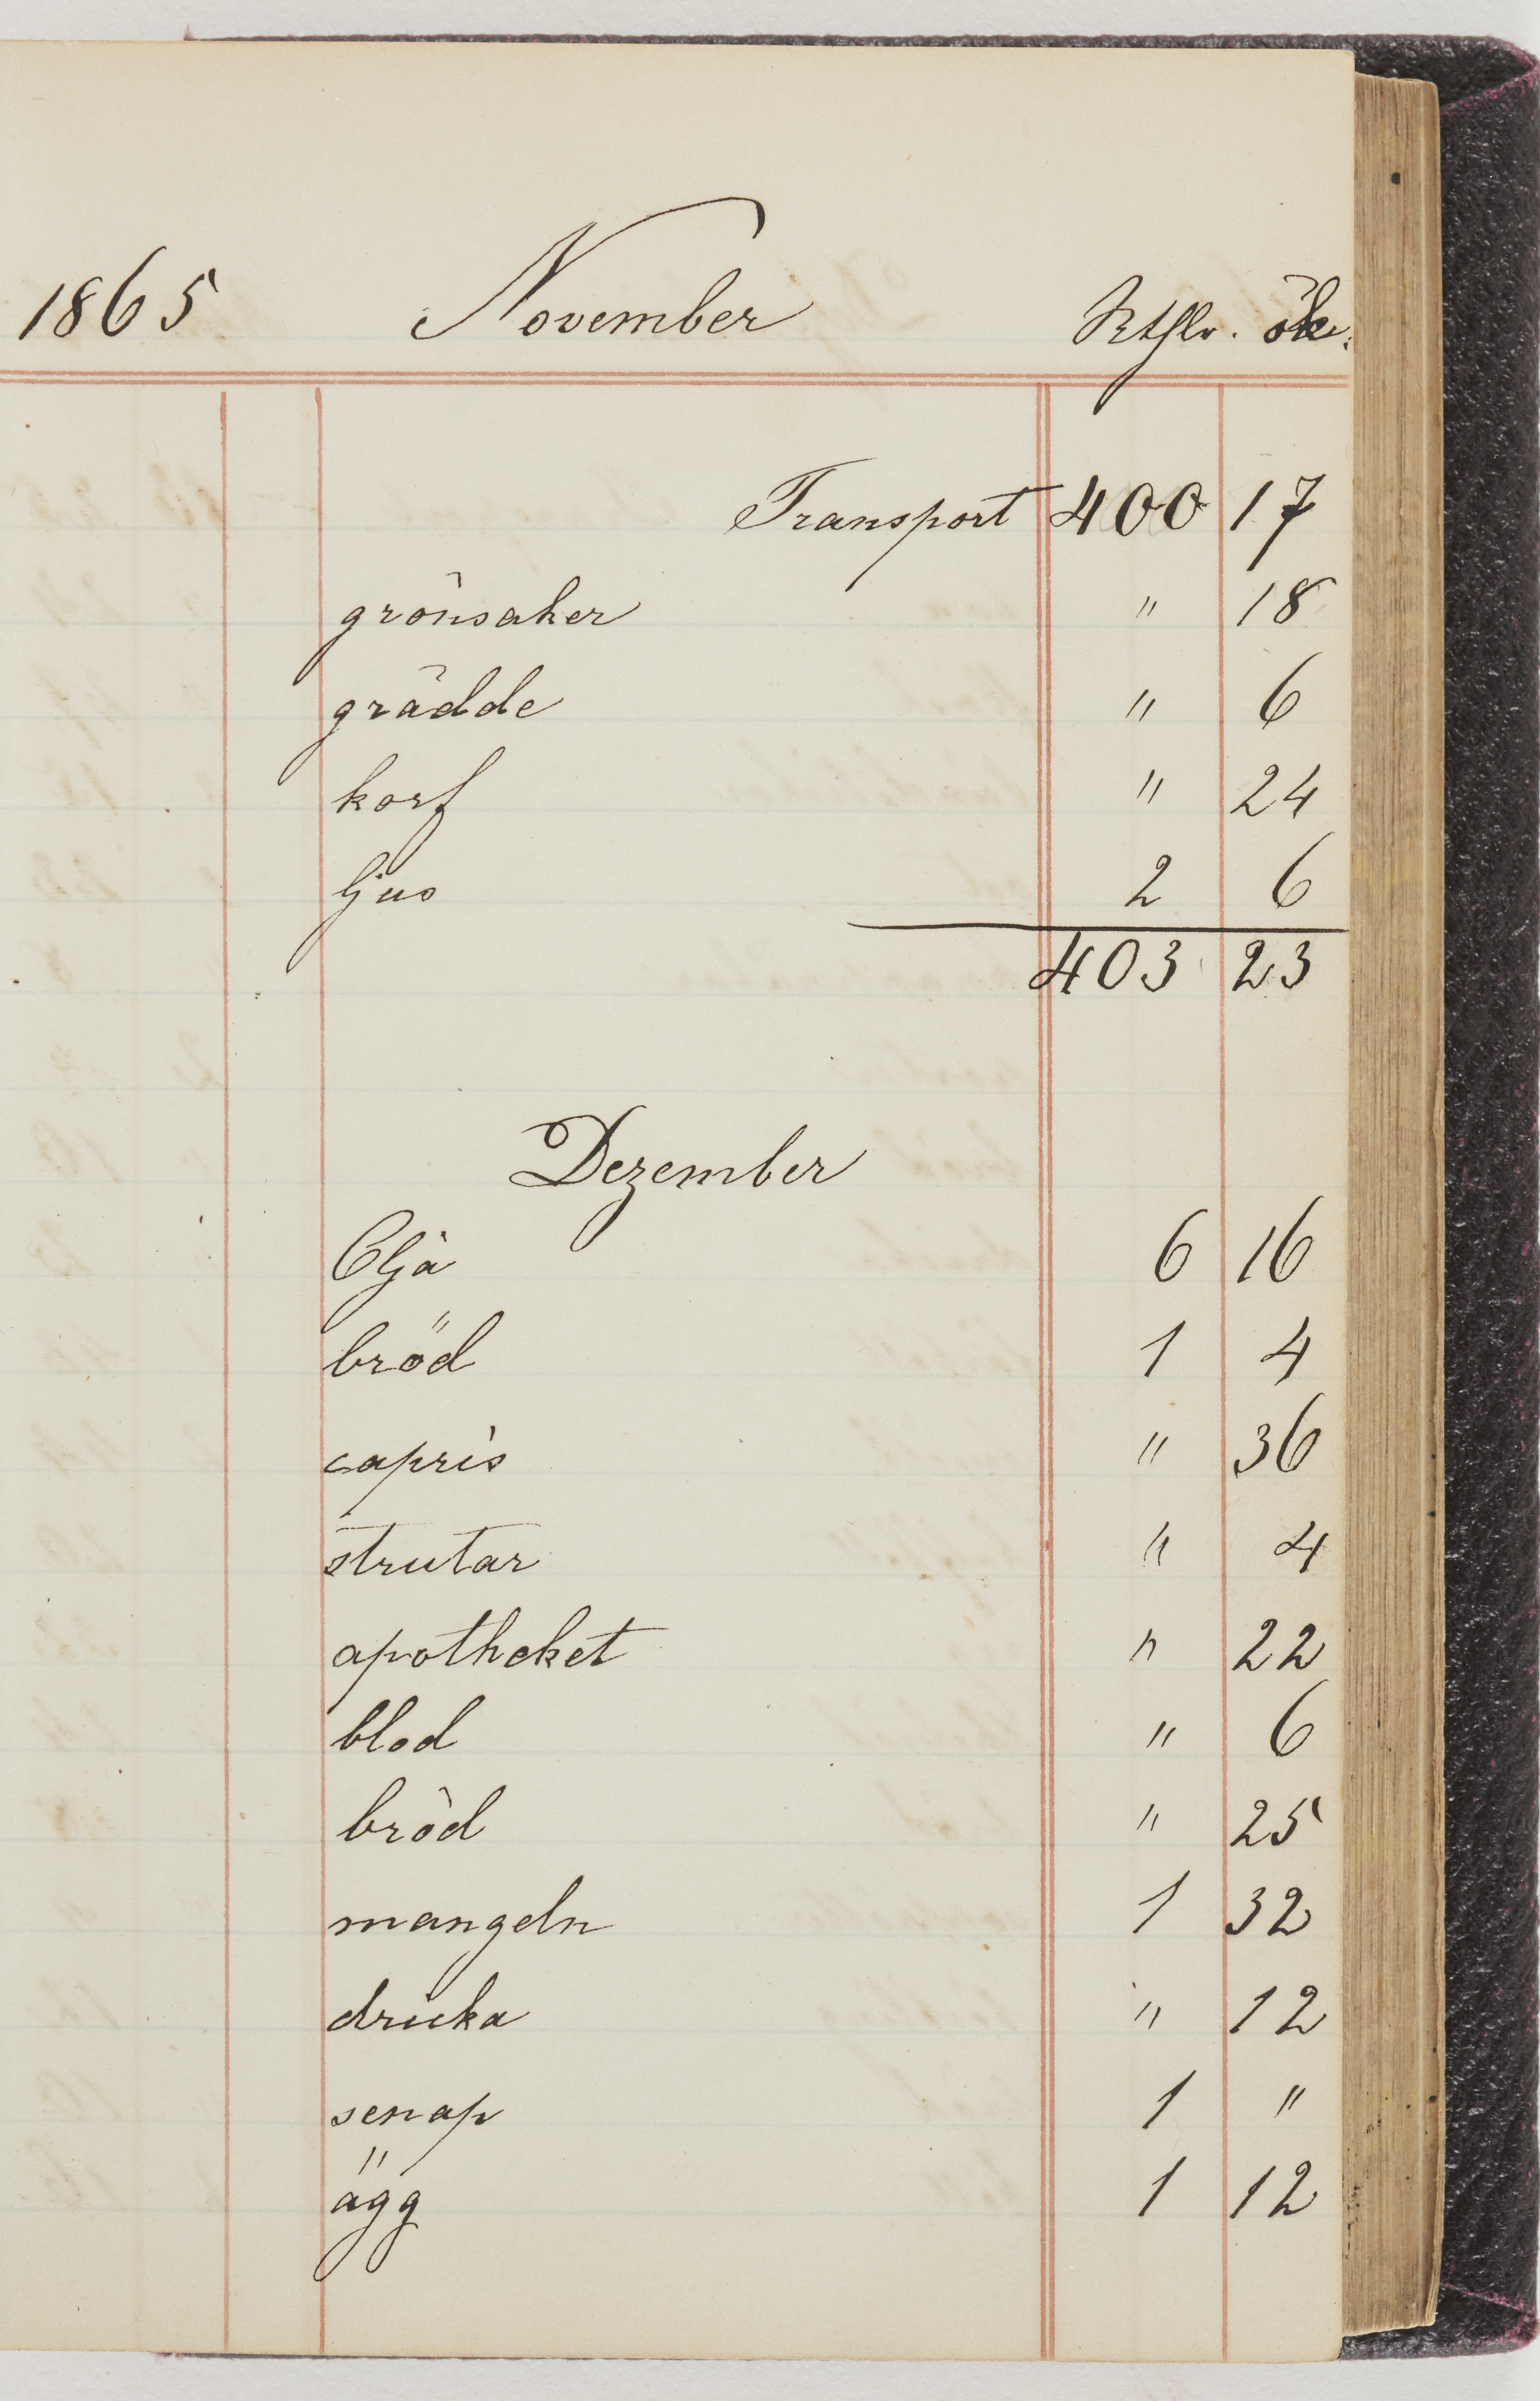 1865 November Rthlr. ök.
Transport 400 17
grönsaker " 18
grädde " 6
korf " 24
ljus 2 6
403 23
Dezember
Oljä 6 16
bröd 1 4
capris " 36
strutar " 4
apotheket " 22
blod " 6
bröd " 25
mangeln 1 32
dricka " 12
senap 1 "
ägg 1 12